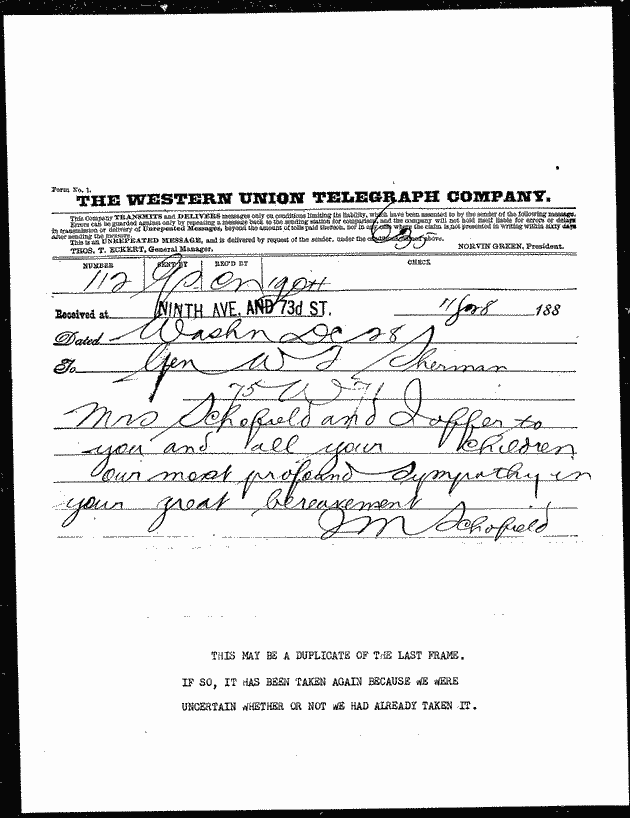 Form No. 1.
THE WESTERN UNION TELEGRAPH COMPANY.
This Company TRANSMITS and DELIVERS messages only on conditions limiting its liability, which have been assented to by the sender of the following message.
Errors can be guarded against only by repeating a message back to the sending station for comparison, and the company will not hold itself liable for errors or delays
in transmission or delivery of Unrepeated Messages, beyond the amount of tolls paid thereon, nor in any case where the claim is not presented in writing within sixty days
after sending the message.
This is an UNREPEATED MESSAGE, and is delivered by request of the sender, under the conditions named above.
THOS. T. ECKERT, General Manager. NORVIN GREEN, President.
NUMBER SENT BY REC'D BY CHECK
112
Received at NINTH AVE. AND 73d ST. 188
Dated Washn DC 28
To Gen W T Sherman
75 W 71
Mrs Schofield and I offer to
you and all your children
our most profound sympathy in
your great bereavement
J M Schofield
THIS MAY BE A DUPLICATE OF THE LAST FRAME.
IF SO, IT HAS BEEN TAKEN AGAIN BECAUSE WE WERE
UNCERTAIN WHETHER OR NOT WE HAD ALREADY TAKEN IT.